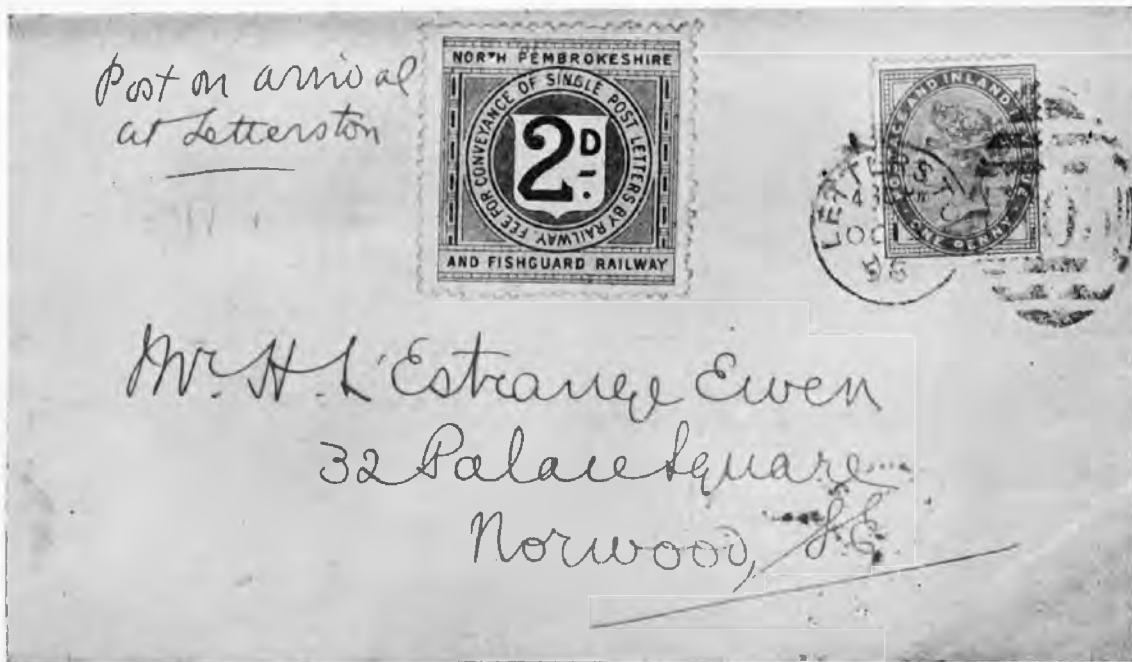 Post on arrival
at Letterston
NORTH PEMBROKESHIRE
FEE FOR CONVEYANCE OF SINGLE POST LETTERS BY RAILWAY.
2D
AND FISHGUARD RAILWAY
POSTAGE AND INLAND REVENUE
ONE PENNY
LETTERSTO
OC 1
96
Mr. H. L'Estrange Ewen
32 Palace Square
Norwood, S.E.